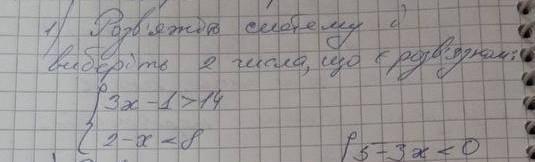 1) Розв'яжіть систему і
виберіть 2 числа, що є розв'язком:
{ 3x - 1 > 14
{ 2 - x < 8
{ 5 - 3x < 0